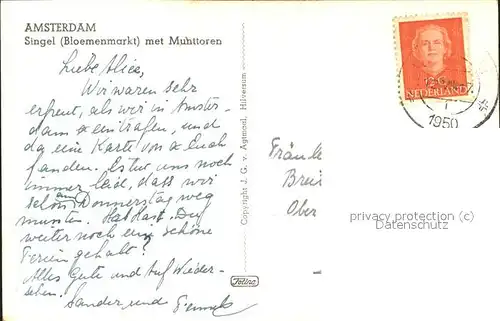 AMSTERDAM
Singel (Bloemenmarkt) met Munttoren
Liebe Alice,
Wir waren sehr
erfreut, als wir in Amster-
dam eintrafen, und
da eine Karte von Euch
fanden. Es tut uns noch
immer leid, dass wir
schon am Donnerstag weg
mussten. Hast Du
weiter noch eine schöne
Ferien gehabt?
Alles Gute und Auf Wieder-
sehen.
Sander und
Copyright J. G. v. Agtmaal, Hilversum
NEDERLAND
1950
Fräule
Brei
Ober
privacy protection (c)
Datenschutz